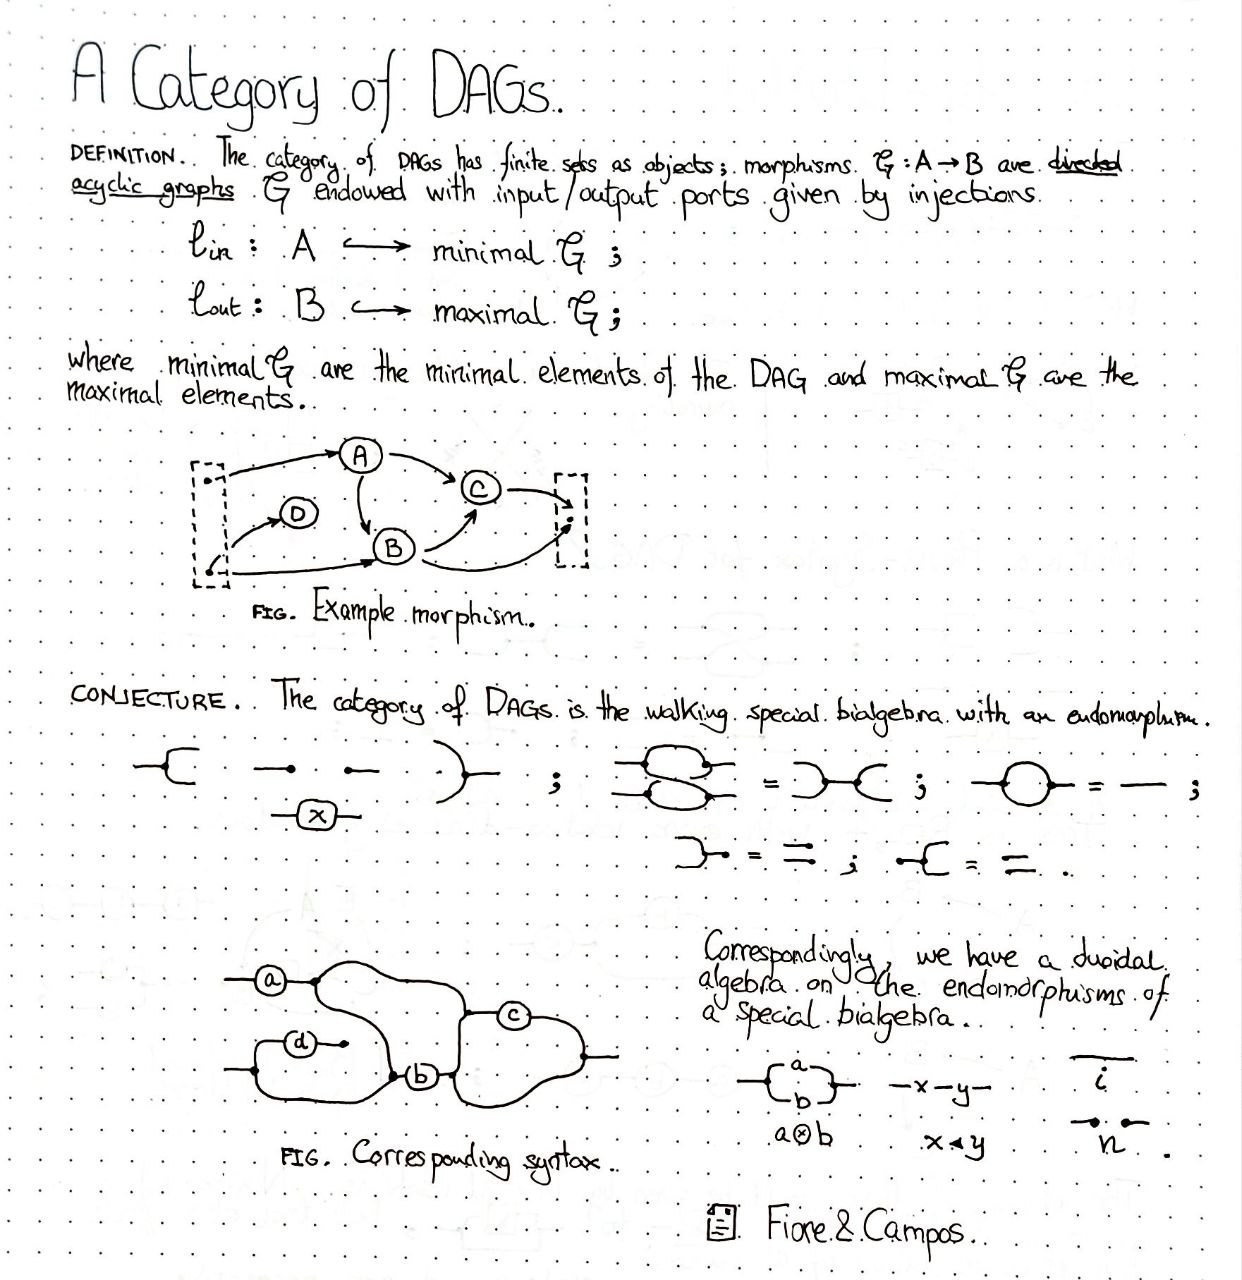 A Category of DAGs.
DEFINITION. The category of DAGs has finite sets as objects; morphisms G : A → B are directed
acyclic graphs G endowed with input/output ports given by injections
lin : A ↪ minimal G ;
lout : B ↪ maximal G ;
where minimal G are the minimal elements of the DAG and maximal G are the
maximal elements.
A
C
D
B
FIG. Example morphism.
CONJECTURE. The category of DAGs is the walking special bialgebra with an endomorphism.
; = ; = ;
x
= ; = .
Correspondingly, we have a duoidal
algebra on the endomorphisms of
a special bialgebra.
a
c
d
b
a
b
-x-y-
i
a⊗b
x◂y
n .
FIG. Corresponding syntax.
Fiore & Campos.